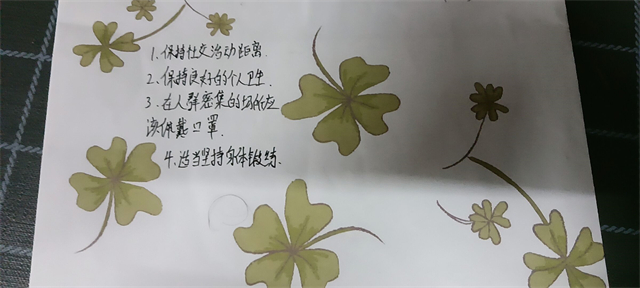 1、保持社交活动距离.
2、保持良好的个人卫生
3、在人群密集的场所应
该佩戴口罩.
4、适当坚持身体锻练.